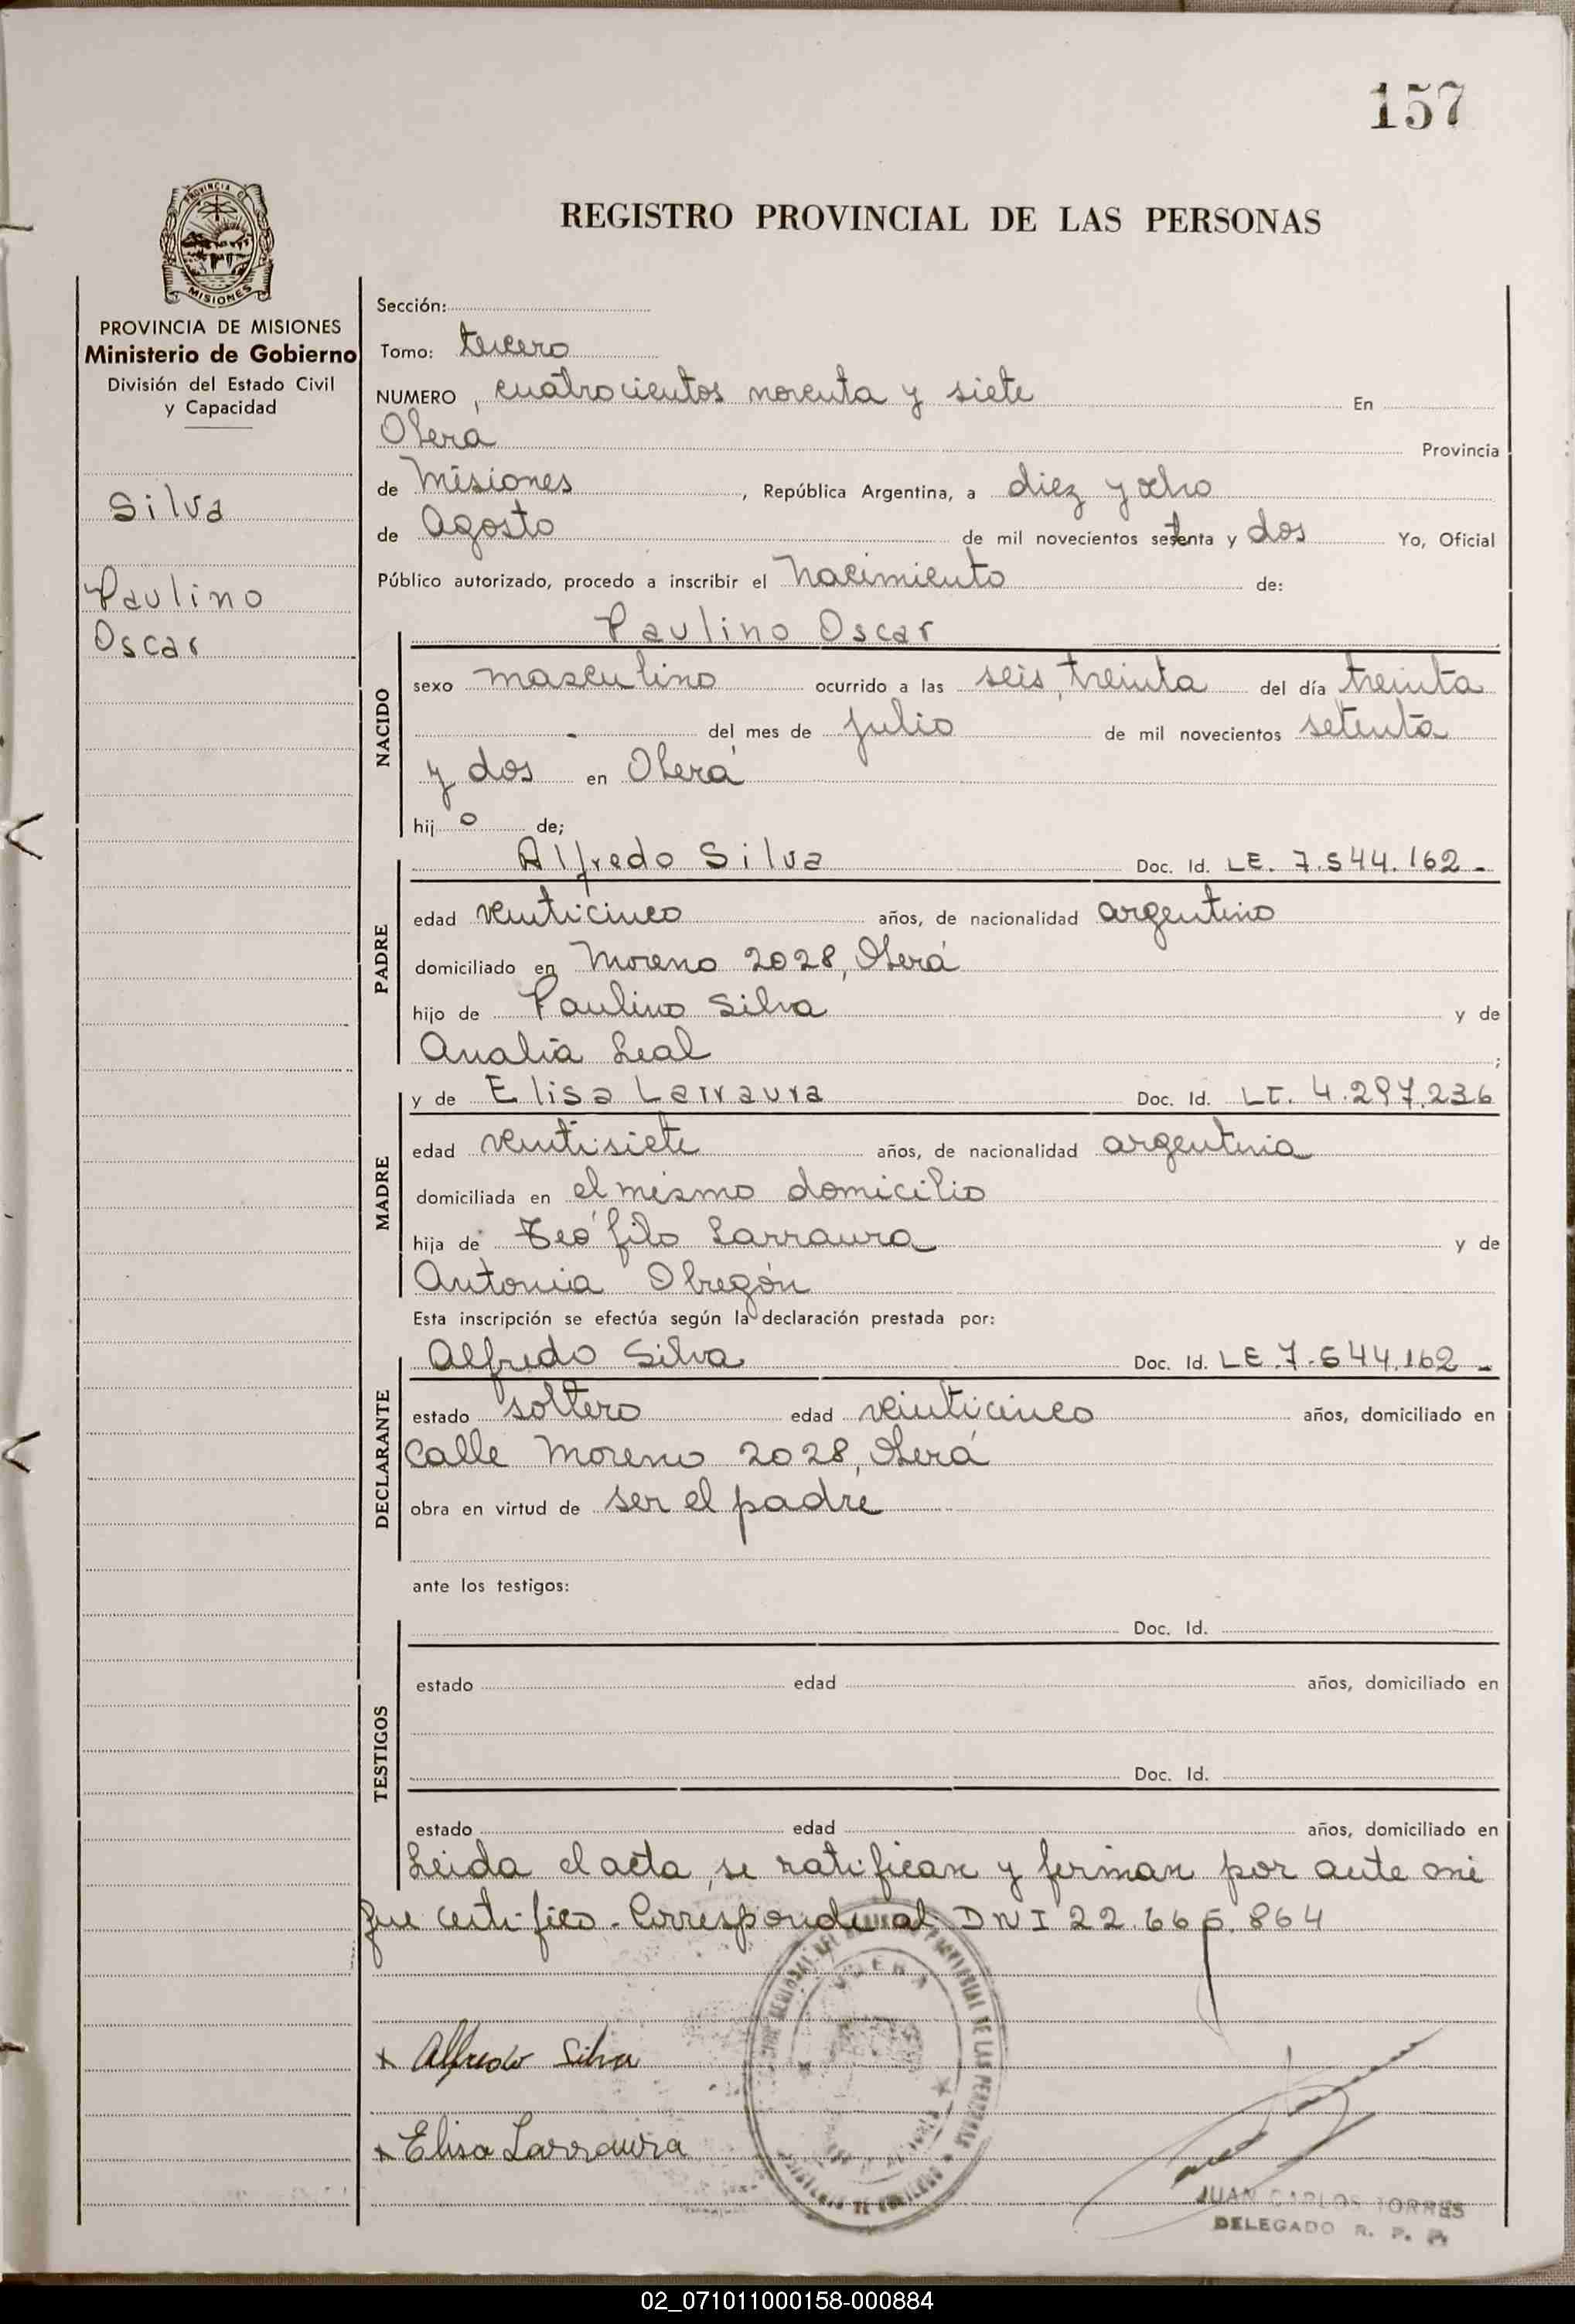 157
PROVINCIA DE
MISIONES
REGISTRO PROVINCIAL DE LAS PERSONAS
PROVINCIA DE MISIONES
Ministerio de Gobierno
División del Estado Civil
y Capacidad
Silva
Paulino
Oscar
Sección:
Tomo: tercero
NUMERO, cuatrocientos noventa y siete En
Oberá Provincia
de Misiones, República Argentina, a diez y ocho
de Agosto de mil novecientos setenta y dos Yo, Oficial
Público autorizado, procedo a inscribir el Nacimiento de:
NACIDO
Paulino Oscar
sexo masculino ocurrido a las seis, treinta del día treinta
del mes de julio de mil novecientos setenta
y dos en Oberá
hijo de;
PADRE
Alfredo Silva Doc. Id. LE. 7.544.162-
edad veinticinco años, de nacionalidad argentino
domiciliado en Moreno 2028, Oberá
hijo de Paulino Silva y de
Analia Leal ;
MADRE
y de Elisa Larraura Doc. Id. LC. 4.297.236
edad veintisiete años, de nacionalidad argentina
domiciliada en el mismo domicilio
hija de Teófilo Larraura y de
Antonia Obregón
Esta inscripción se efectúa según la declaración prestada por:
DECLARANTE
Alfredo Silva Doc. Id. LE. 7.544.162-
estado soltero edad veinticinco años, domiciliado en
Calle Moreno 2028, Oberá
obra en virtud de ser el padre
ante los testigos:
TESTIGOS
Doc. Id.
estado edad años, domiciliado en
Doc. Id.
estado edad años, domiciliado en
Leida el acta, se ratifican y firman por ante mi
que certifico. Corresponde al DNI 22.665.864
x Alfredo Silva
x Elisa Larraura
JUAN CARLOS TORRES
DELEGADO R. P. P.
02_071011000158-000884